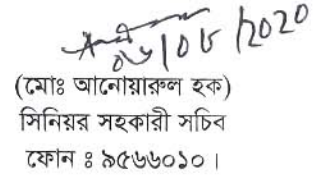 ০৬/০৮/2020
(মোঃ আনোয়ারুল হক)
সিনিয়র সহকারী সচিব
ফোন ঃ ৯৫৬৬০১০।